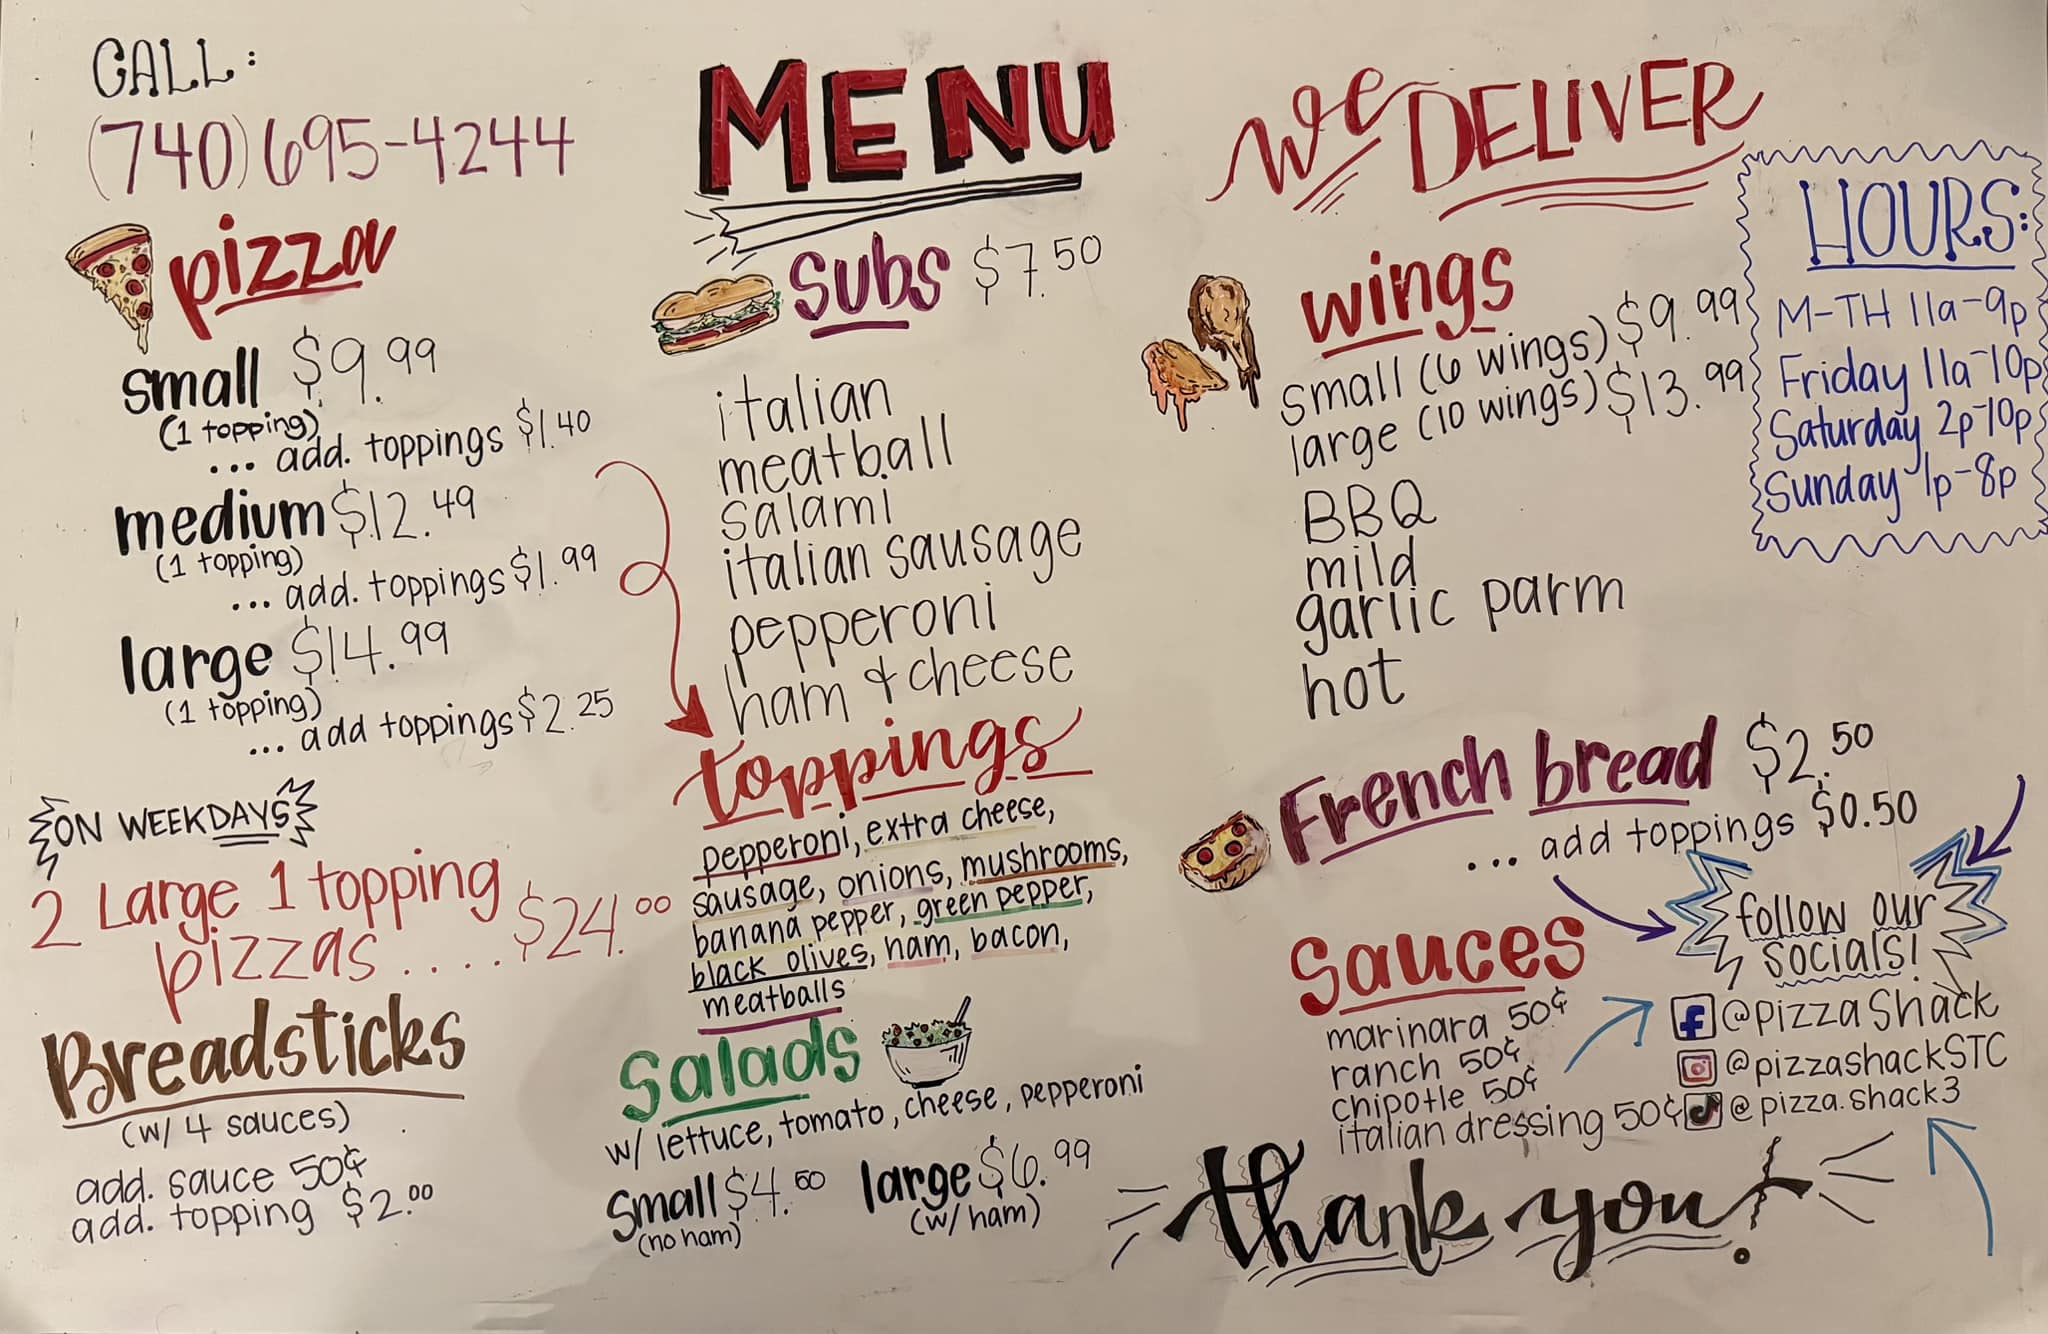 CALL:
(740)695-4244
pizza
small $9.99
(1 topping)
... add. toppings $1.40
medium $12.49
(1 topping)
... add. toppings $1.99
large $14.99
(1 topping)
... add toppings $2.25
ON WEEKDAYS
2 Large 1 topping
pizzas....$24.00
Breadsticks
(w/ 4 sauces)
add. sauce 50¢
add. topping $2.00
MENU
subs $7.50
italian
meatball
salami
italian sausage
pepperoni
ham & cheese
toppings
pepperoni, extra cheese,
sausage, onions, mushrooms,
banana pepper, green pepper,
black olives, ham, bacon,
meatballs
Salads
w/ lettuce, tomato, cheese, pepperoni
small $4.50
(no ham)
large $6.99
(w/ ham)
we DELIVER
wings
small (6 wings) $9.99
large (10 wings) $13.99
BBQ
mild
garlic parm
hot
French bread $2.50
... add toppings $0.50
Sauces
marinara 50¢
ranch 50¢
chipotle 50¢
italian dressing 50¢
HOURS:
M-TH 11a-9p
Friday 11a-10p
Saturday 2p-10p
Sunday 1p-8p
follow our
socials!
f @pizzaShack
@pizzashackSTC
@pizza.shack3
thank you!